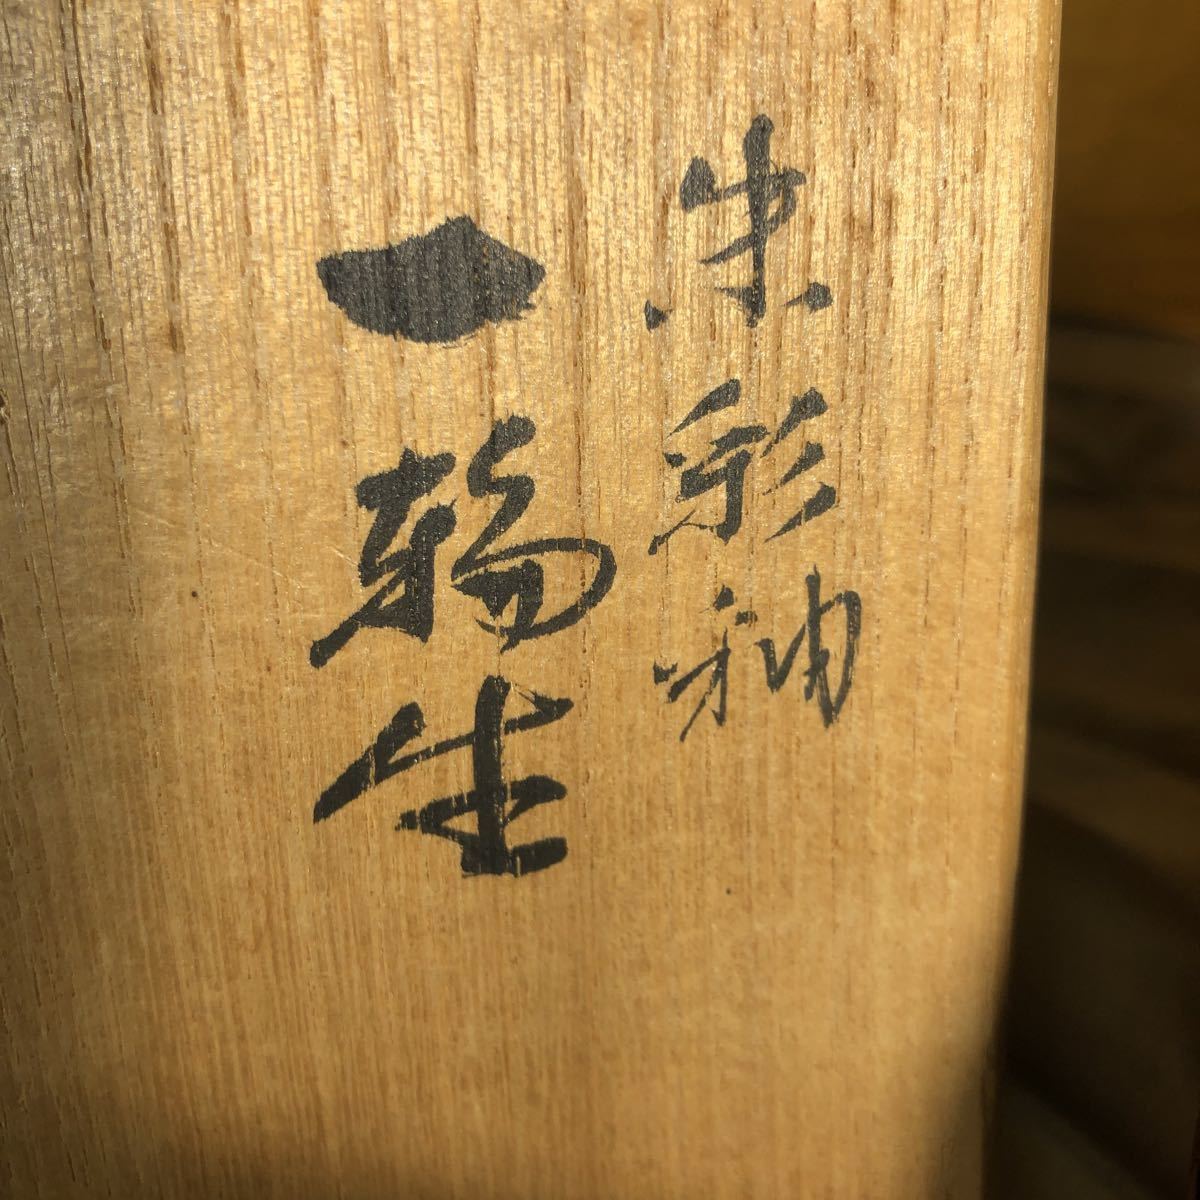 朱彩釉
一輪生